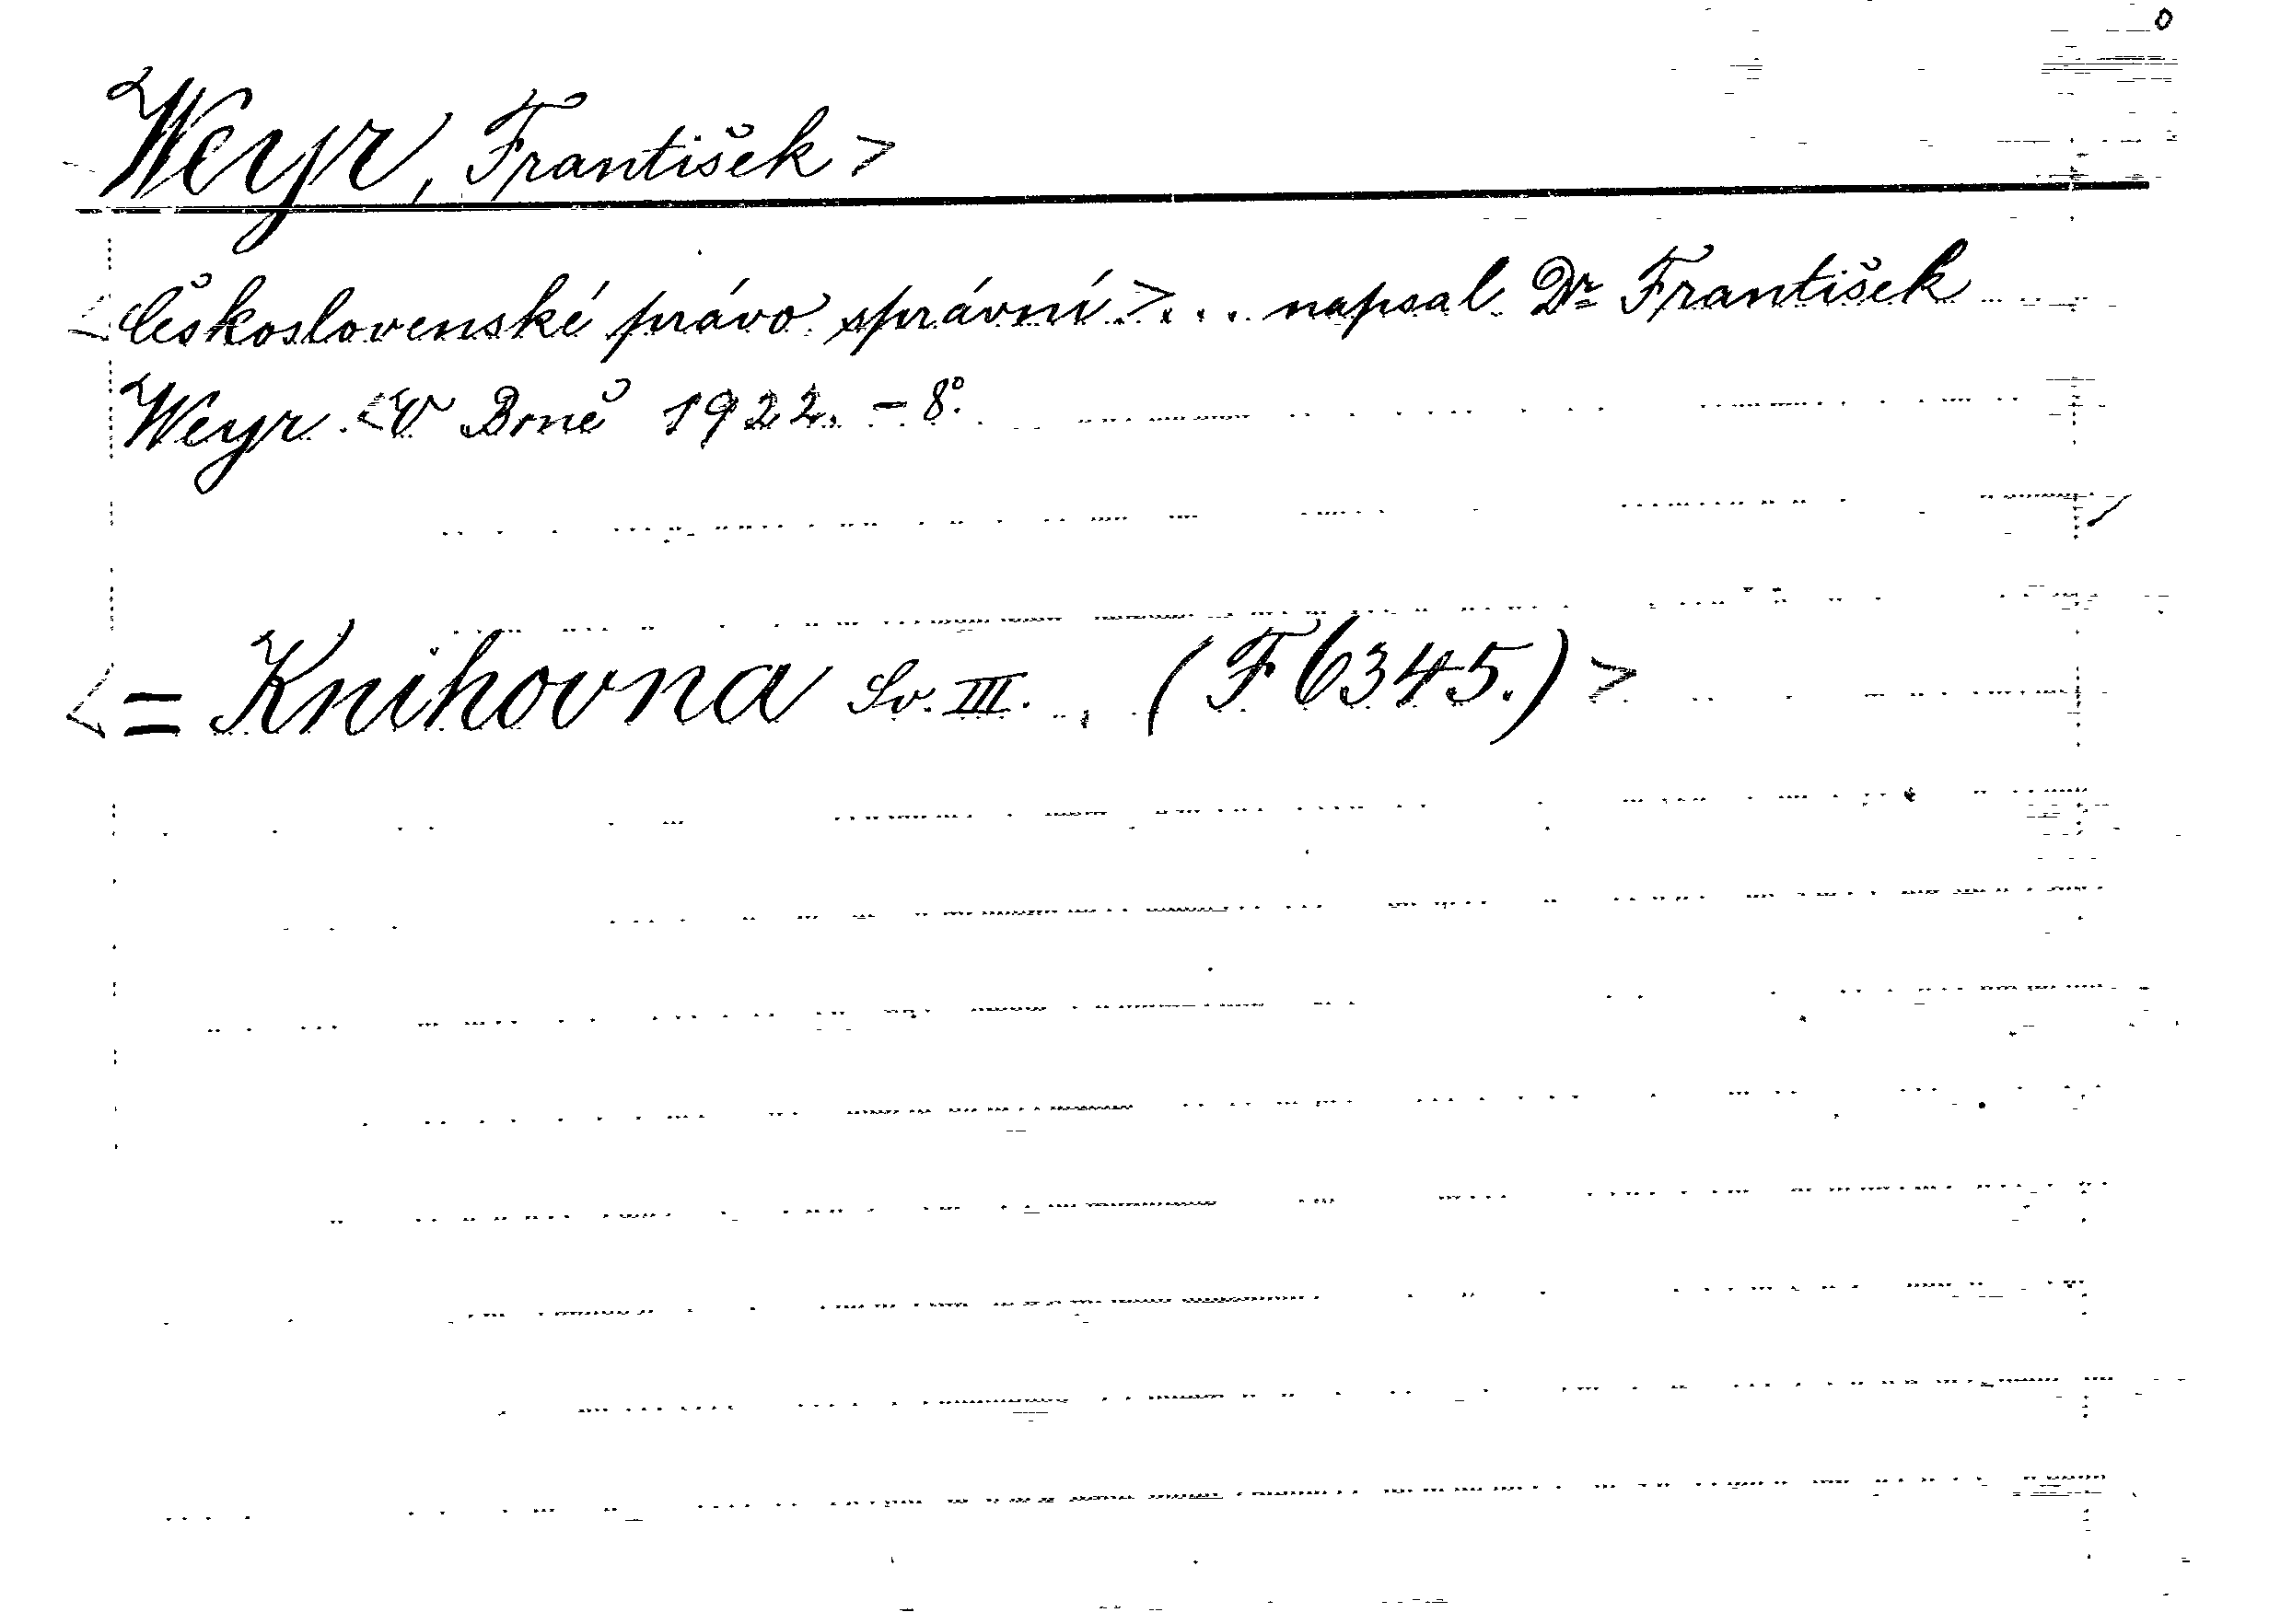 Weyr, František >
< Československé právo správní > ... napsal Dr František
Weyr. < V Brně 1922. - 8°.
< = Knihovna Sv. III. , (F 6345.) >